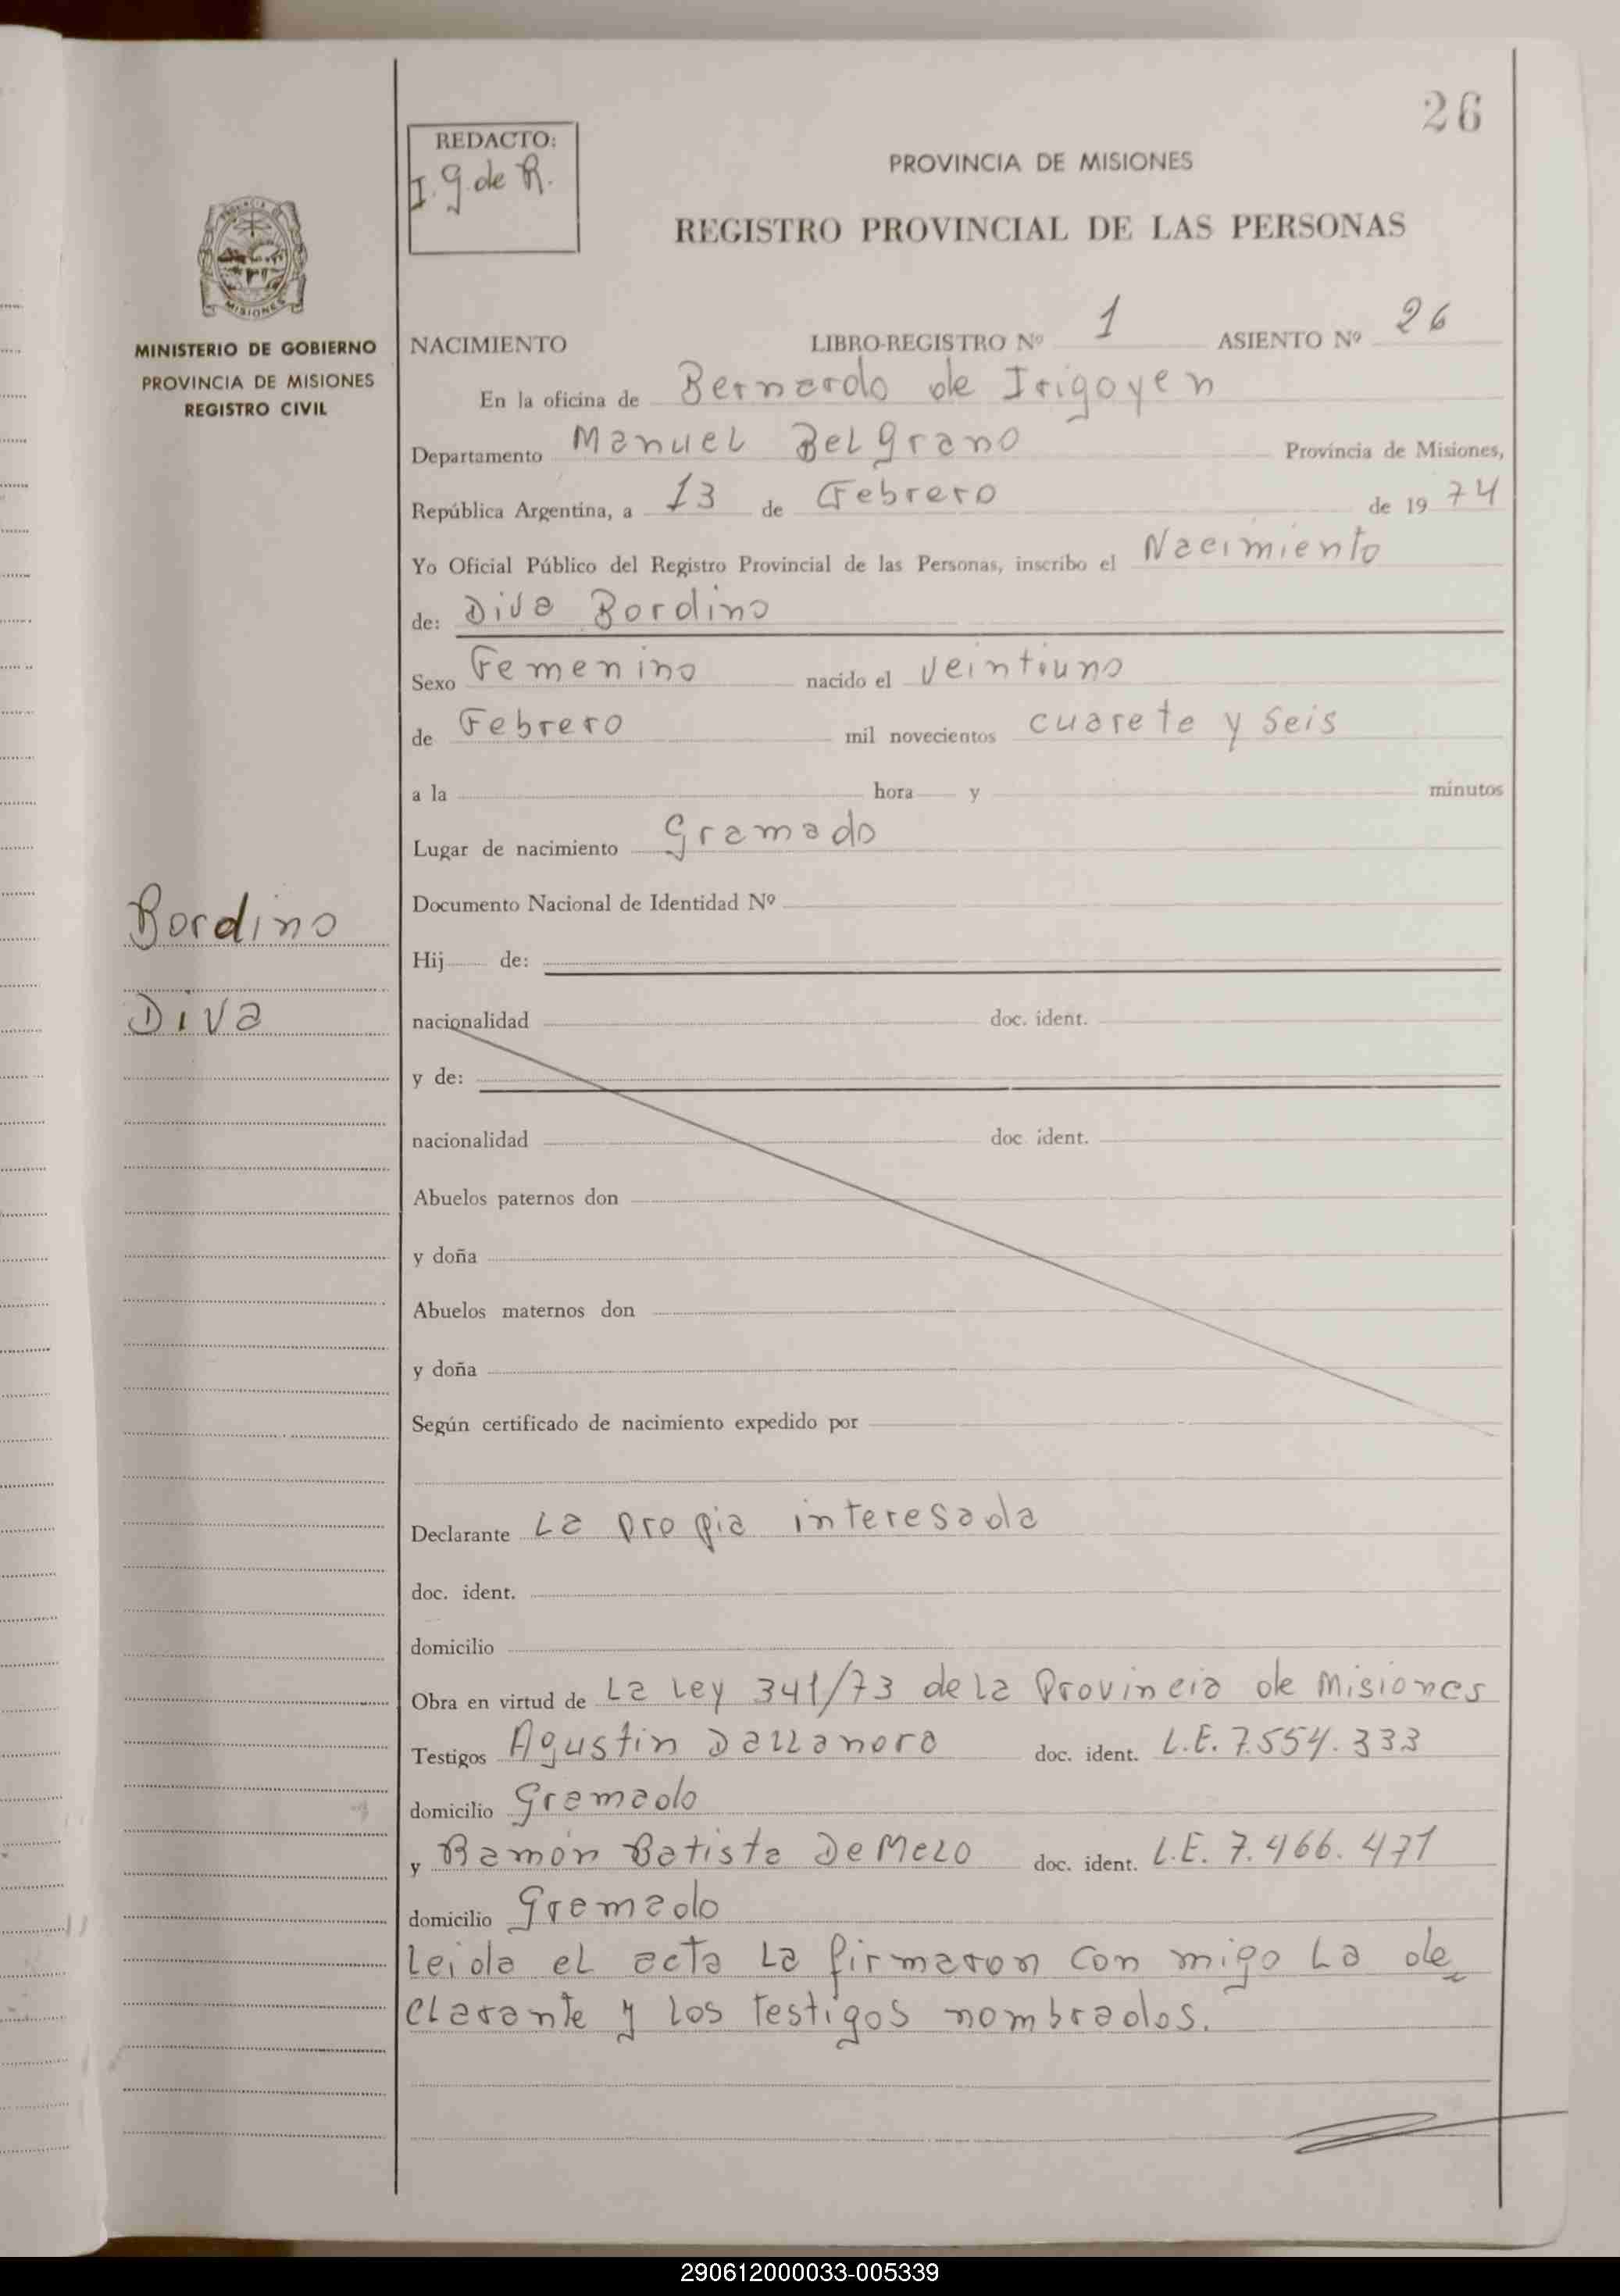 26
REDACTO:
I. G. de R.
PROVINCIA DE MISIONES
REGISTRO PROVINCIAL DE LAS PERSONAS
MISIONES
MINISTERIO DE GOBIERNO
PROVINCIA DE MISIONES
REGISTRO CIVIL
NACIMIENTO LIBRO-REGISTRO Nº 1 ASIENTO Nº 26
En la oficina de Bernardo de Irigoyen
Departamento Manuel Belgrano Provincia de Misiones,
República Argentina, a 13 de Febrero de 1974
Yo Oficial Público del Registro Provincial de las Personas, inscribo el Nacimiento
de: Diva Bordino
Sexo Femenino nacido el veintiuno
de Febrero mil novecientos cuarete y seis
a la hora y minutos
Lugar de nacimiento Gramado
Documento Nacional de Identidad Nº
Bordino
Hij de:
Diva
nacionalidad doc. ident.
y de:
nacionalidad doc ident.
Abuelos paternos don
y doña
Abuelos maternos don
y doña
Según certificado de nacimiento expedido por
Declarante La propia interesada
doc. ident.
domicilio
Obra en virtud de La Ley 341/73 de la Provincia de Misiones
Testigos Agustin Dallanora doc. ident. L.E. 7.554.333
domicilio Gramado
y Ramón Batista De Melo doc. ident. L.E. 7.466.471
domicilio Gramado
Leida el acta la firmaron con migo La de
clarante y los testigos nombrados.
290612000033-005339